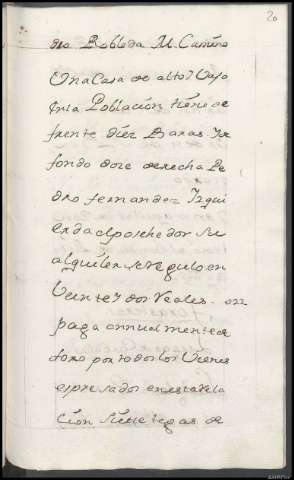 20
dro Robleda M. Camino
Una Casa de alto y Vajo
en la Población tiene de
frente diez Baras y de
fondo doze derecha Pe
dro fernandez Izqui
erda el posehedor su
alquiler se regulo en
Veinte y dos reales - 022
paga annualmente de
foro por todos los Vienes
expresados en esta rela
ción siete fegas de